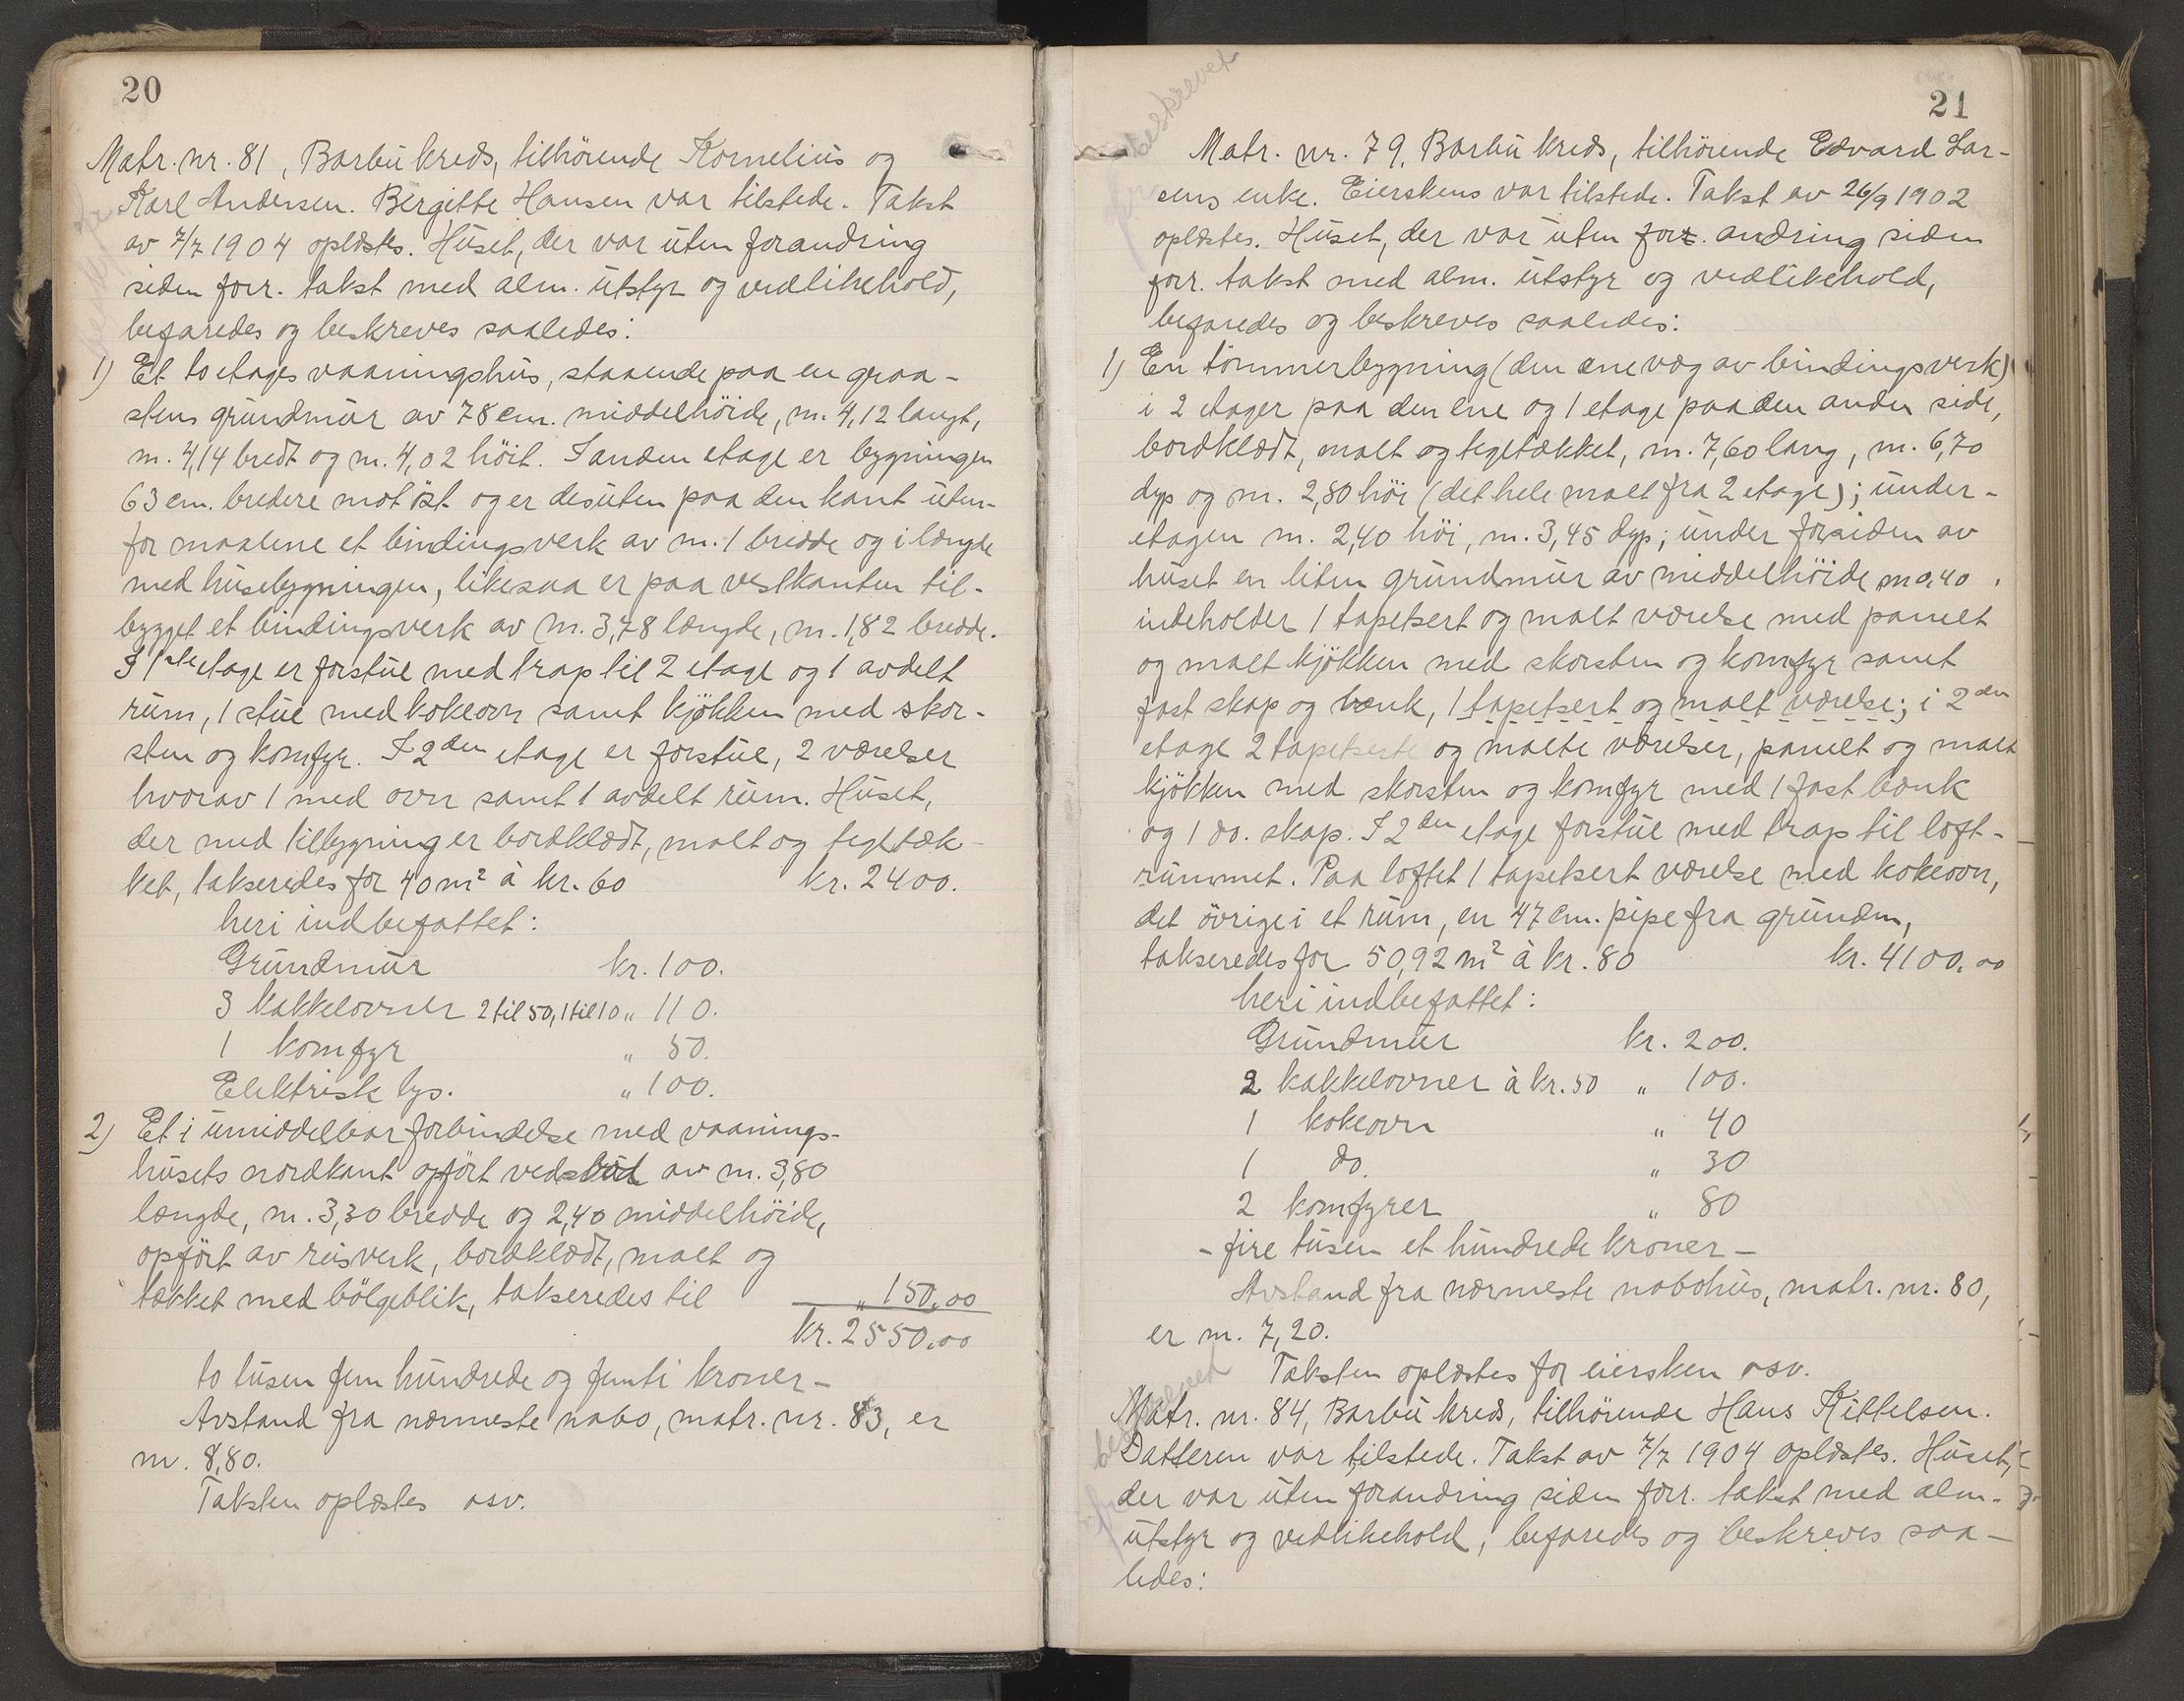 20
Matr. nr. 81, Barbu kreds, tilhörende Kornelius og
Karl Andersen. Birgitte Hansen var tilstede. Takst
av 7/7 1904 oplæstes. Huset, der var uten forandring
siden forr. takst med alm. utstyr og vedlikehold,
befaredes og beskreves saaledes:
1) Et to etages vaaningshus, staaende paa en graa-
stens grundmur av 78 cm. middelhöide, m. 4,12 langt,
m. 4,14 bredt og m. 4,02 höit. I anden etage er bygningen
63 cm. bredere mot öst og er desuten paa den kant uten-
for maalene et bindingsverk av m. 1 bredde og i længde
med husebygningen, likesaa er paa vestkanten til-
bygget et bindingsverk av m. 3,78 længde, m. 1,82 bredde.
I 1ste etage er forstue med trap til 2 etage og 1 avdelt
rum, 1 stue med kokeovn samt kjökken med skor-
sten og komfyr. I 2den etage er forstue, 2 værelser
hvorav 1 med ovn samt 1 avdelt rum. Huset,
der med tilbygning er bordklædt, malt og tegltæk-
ket, takseredes for 40 m² à kr. 60 kr. 2400.
heri indbefattet:
Grundmur kr. 100.
3 kakkelovner 2 til 50, 1 til 10 „ 110.
1 komfyr „ 50.
Elektrisk lys. „ 100.
2) Et i umiddelbar forbindelse med vaanings-
husets nordkant opfört vedskul av m. 3,80
længde, m. 3,30 bredde og 2,40 middelhöide,
opfört av reisverk, bordklædt, malt og
tækket med bölgeblik, takseredes til „ 150.00
kr. 2550.00
to tusen fem hundrede og femti kroner-
Avstand fra nærmeste nabo, matr. nr. 83, er
m. 8,80.
Taksten oplæstes osv.
21
beskrevet
Matr. nr. 79, Barbu kreds, tilhörende Edvard Lar-
sens enke. Eiersken var tilstede. Takst av 26/9 1902
oplæstes. Huset, der var uten for. andring siden
forr. takst med alm. utstyr og vedlikehold,
befaredes og beskreves saaledes:
1) En tömmerbygning (den ene væg av bindingsverk)
i 2 etager paa den ene og 1 etage paa den anden side,
bordklædt, malt og tegltækket, m. 7,60 lang, m. 6,70
dyp og m. 2,80 höi (det hele maalt fra 2 etage); under-
etagen m. 2,40 höi, m. 3,45 dyp; under forsiden av
huset en liten grundmur av middelhöide m 0,40.
indeholder 1 tapetsert og malt værelse med panelt
og malt kjökken med skorsten og komfyr samt
fast skap og bænk, 1 tapetsert og malt værelse; i 2den
etage 2 tapetserte og malte værelser, panelt og malt
kjökken med skorsten og komfyr med 1 fast bænk
og 1 do. skap. I 2den etage forstue med trap til loft-
rummet. Paa loftet 1 tapetsert værelse med kokeovn,
det övrige i et rum, en 47 cm. pipe fra grunden,
takseredes for 50,92 m² à kr. 80 kr. 4100.00
heri indbefattet:
Grundmur kr. 200.
2 kakkelovner à kr. 50 „ 100.
1 kokeovn „ 40
1 do. „ 30
2 komfyrer „ 80
- fire tusen et hundrede kroner -
Avstand fra nærmeste nabohus, matr. nr. 80,
er m. 7,20.
Taksten oplæstes for eiersken osv.
beskrevet
Matr. nr. 84, Barbu kreds, tilhörende Hans Kittelsen.
Datteren var tilstede. Takst av 7/7 1904 oplæstes. Huset,
der var uten forandring siden forr. takst med alm.
utstyr og vedlikehold, befaredes og beskreves saa-
ledes: